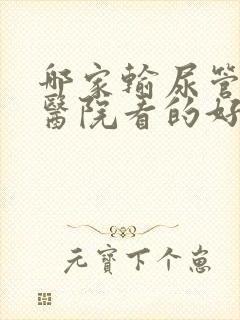 邮家输尿管
醫院看的好
元寶下个崽